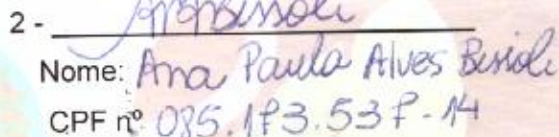 2 -
Nome: Ana Paula Alves Bissoli
CPF nº 085.173.537-14